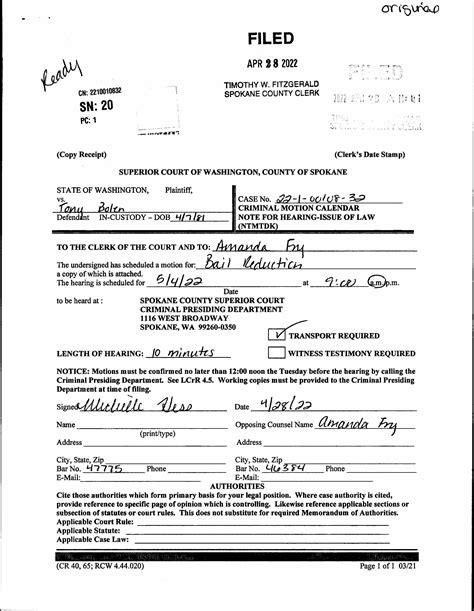 original
FILED
APR 28 2022
Ready
TIMOTHY W. FITZGERALD
SPOKANE COUNTY CLERK
CN: 2210010832
SN: 20
PC: 1
FILED
(Copy Receipt) (Clerk's Date Stamp)
SUPERIOR COURT OF WASHINGTON, COUNTY OF SPOKANE
STATE OF WASHINGTON, Plaintiff,
vs.
Tony Bolen
Defendant IN-CUSTODY – DOB 4/7/81
CASE No. 22-1-00108-32
CRIMINAL MOTION CALENDAR
NOTE FOR HEARING-ISSUE OF LAW
(NTMTDK)
TO THE CLERK OF THE COURT AND TO: Amanda Fry
The undersigned has scheduled a motion for: Bail Reduction
a copy of which is attached.
The hearing is scheduled for 5/4/22 at 9:00 a.m./p.m.
Date
to be heard at : SPOKANE COUNTY SUPERIOR COURT
CRIMINAL PRESIDING DEPARTMENT
1116 WEST BROADWAY
SPOKANE, WA 99260-0350
TRANSPORT REQUIRED
LENGTH OF HEARING: 10 minutes WITNESS TESTIMONY REQUIRED
NOTICE: Motions must be confirmed no later than 12:00 noon the Tuesday before the hearing by calling the
Criminal Presiding Department. See LCrR 4.5. Working copies must be provided to the Criminal Presiding
Department at time of filing.
Signed Michelle Hess Date 4/28/22
Name Opposing Counsel Name Amanda Fry
(print/type)
Address Address
City, State, Zip City, State, Zip
Bar No. 47775 Phone Bar No. 46384 Phone
E-Mail: E-Mail:
AUTHORITIES
Cite those authorities which form primary basis for your legal position. Where case authority is cited,
provide reference to specific page of opinion which is controlling. Likewise reference applicable sections or
subsection of statutes or court rules. This does not substitute for required Memorandum of Authorities.
Applicable Court Rule:
Applicable Statute:
Applicable Case Law:
(CR 40, 65; RCW 4.44.020) Page 1 of 1 03/21